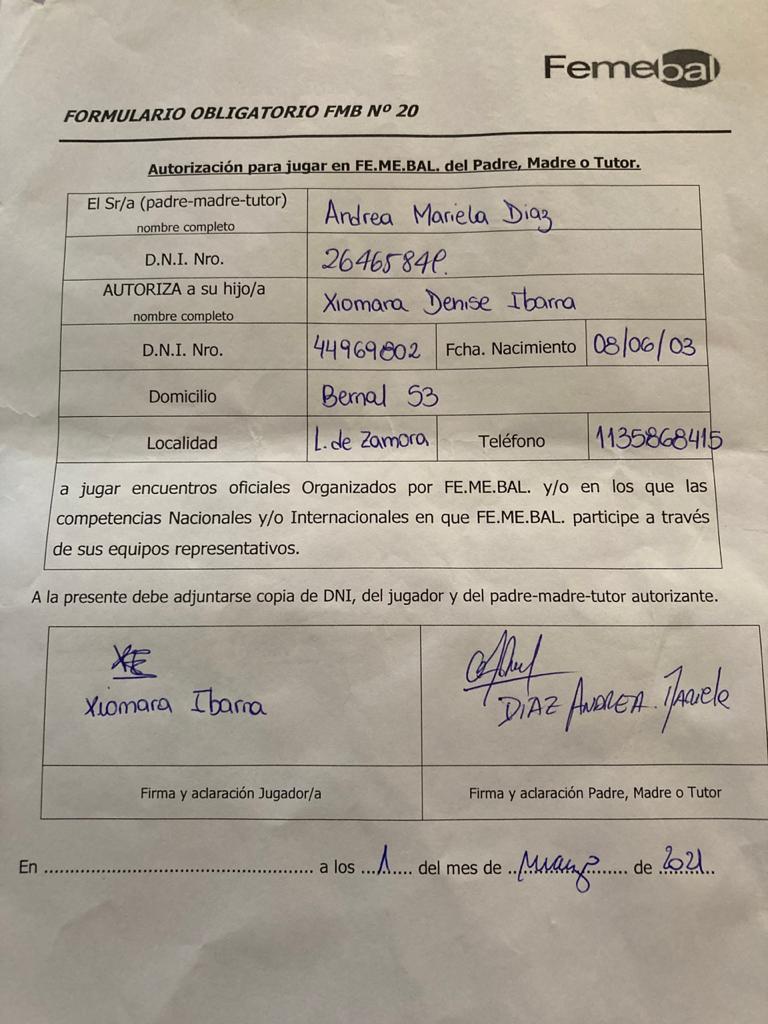 Femebal
FORMULARIO OBLIGATORIO FMB Nº 20
Autorización para jugar en FE.ME.BAL. del Padre, Madre o Tutor.
El Sr/a (padre-madre-tutor)
nombre completo
Andrea Mariela Diaz
D.N.I. Nro.
AUTORIZA a su hijo/a
nombre completo
Xiomara Denise Ibarra
D.N.I. Nro. 44969802 Fcha. Nacimiento 08/06/03
Domicilio Bernal 53
Localidad L. de Zamora Teléfono 1135868415
a jugar encuentros oficiales Organizados por FE.ME.BAL. y/o en los que las
competencias Nacionales y/o Internacionales en que FE.ME.BAL. participe a través
de sus equipos representativos.
A la presente debe adjuntarse copia de DNI, del jugador y del padre-madre-tutor autorizante.
Xiomara Ibarra
DIAZ ANDREA. Mariela
Firma y aclaración Jugador/a
Firma y aclaración Padre, Madre o Tutor
En ................................................ a los ...1.... del mes de ..Marzo...... de 2021..